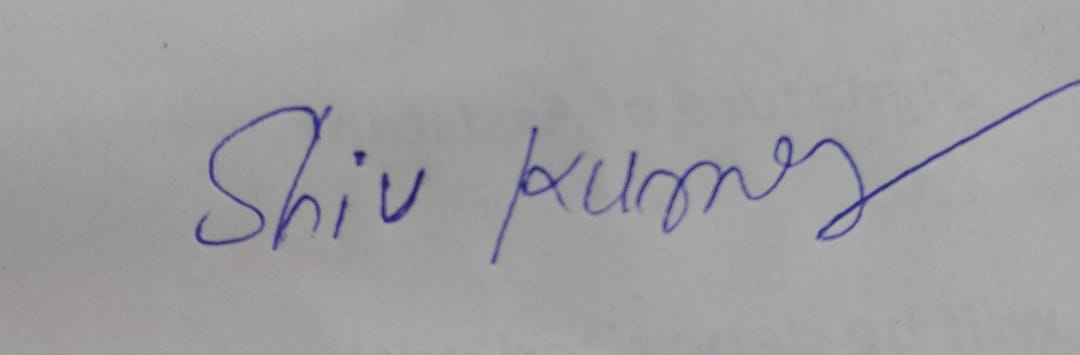 Shiv Kumar